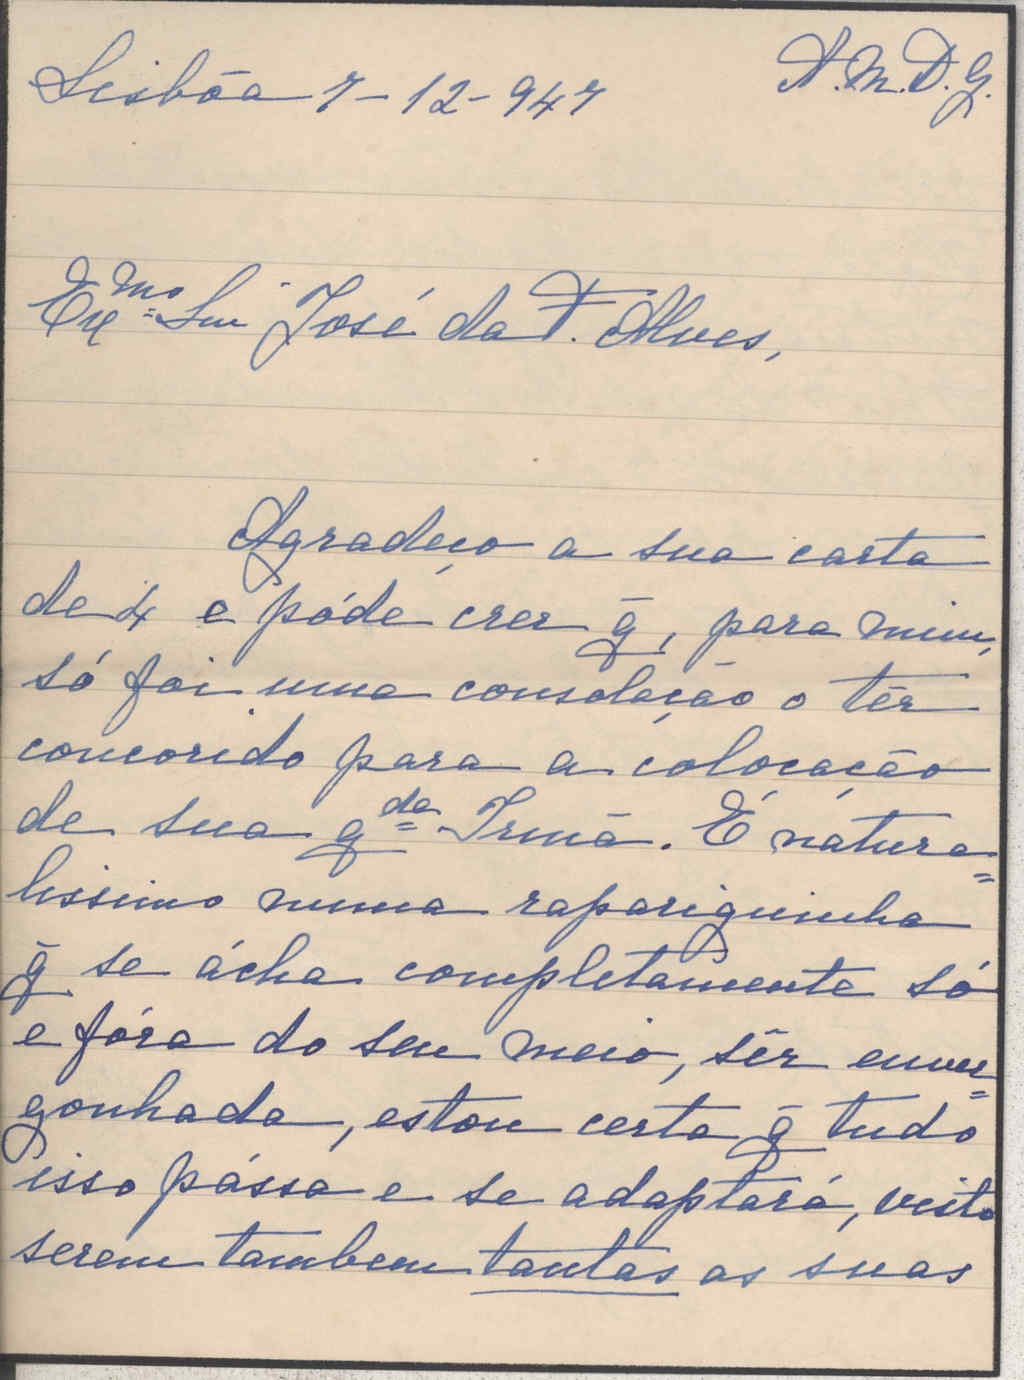 Lisbôa 7-12-947
A.M.D.G.
Ex.mo Snr José da F. Alves,
Agradeço a sua carta
de 4 e póde crer q̄, para mim,
só foi uma consolação o têr
concorido para a colocação
de sua q.da Irmã. É nátura=
lissimo numa rapariguinha
q̄ se ácha completamente só
e fóra do seu meio, sêr enver=
gonhada, estou certa q̄ tudo
isso pássa e se adaptará, visto
serem tambem tantas as suas